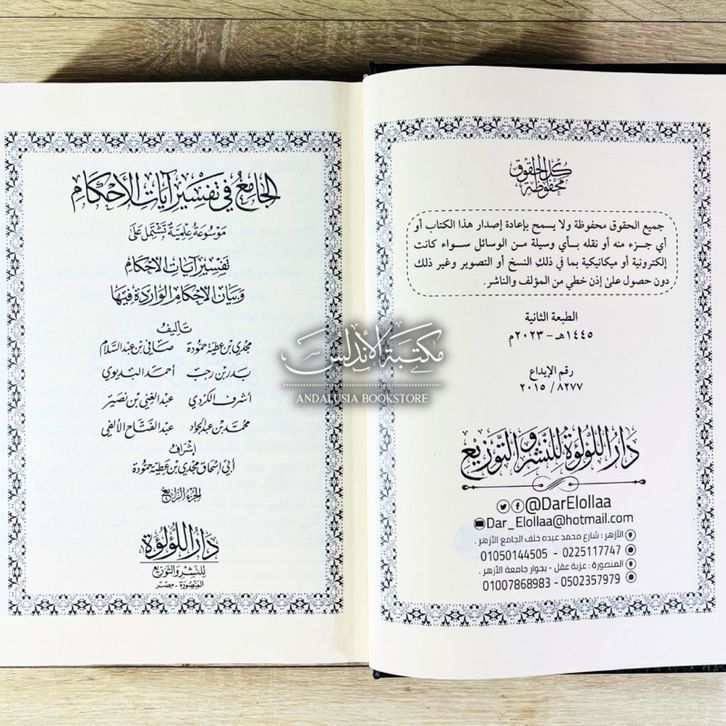 كل الحقوق
محفوظة
جميع الحقوق محفوظة ولا يسمح بإعادة إصدار هذا الكتاب أو
أي جزء منه أو نقله بأي وسيلة من الوسائل سواء كانت
إلكترونية أو ميكانيكية بما في ذلك النسخ أو التصوير وغير ذلك
دون حصول على إذن خطي من المؤلف والناشر.
الطبعة الثانية
١٤٤٥هـ - ٢٠٢٣م
رقم الإيداع
٨٢٧٧ / ٢٠١٥
دار اللؤلؤة للنشر والتوزيع
@DarElollaa
Dar_Elollaa@hotmail.com
الأزهر : شارع محمد عبده خلف الجامع الأزهر .
01050144505 - 0225117747
المنصورة : عزبة عقل - بجوار جامعة الأزهر .
01007868983 - 0502357979
الجامع في تفسير آيات الأحكام
موسوعة علمية تشتمل على
تفسير آيات الأحكام
وبيان الأحكام الواردة فيها
تأليف
مجدي بن عطية حمودة صافي بن عبد السلام
بدر بن رجب أحمد البديوي
أشرف الكردي عبد الغني بن نصير
محمد بن عبد الجواد عبد الفتاح الألفي
إشراف
أبي إسحاق مجدي بن عطية حمودة
الجزء الرابع
دار اللؤلؤة
للنشر والتوزيع
المنصورة - مصر
مكتبة الأندلس
ANDALUSIA BOOKSTORE